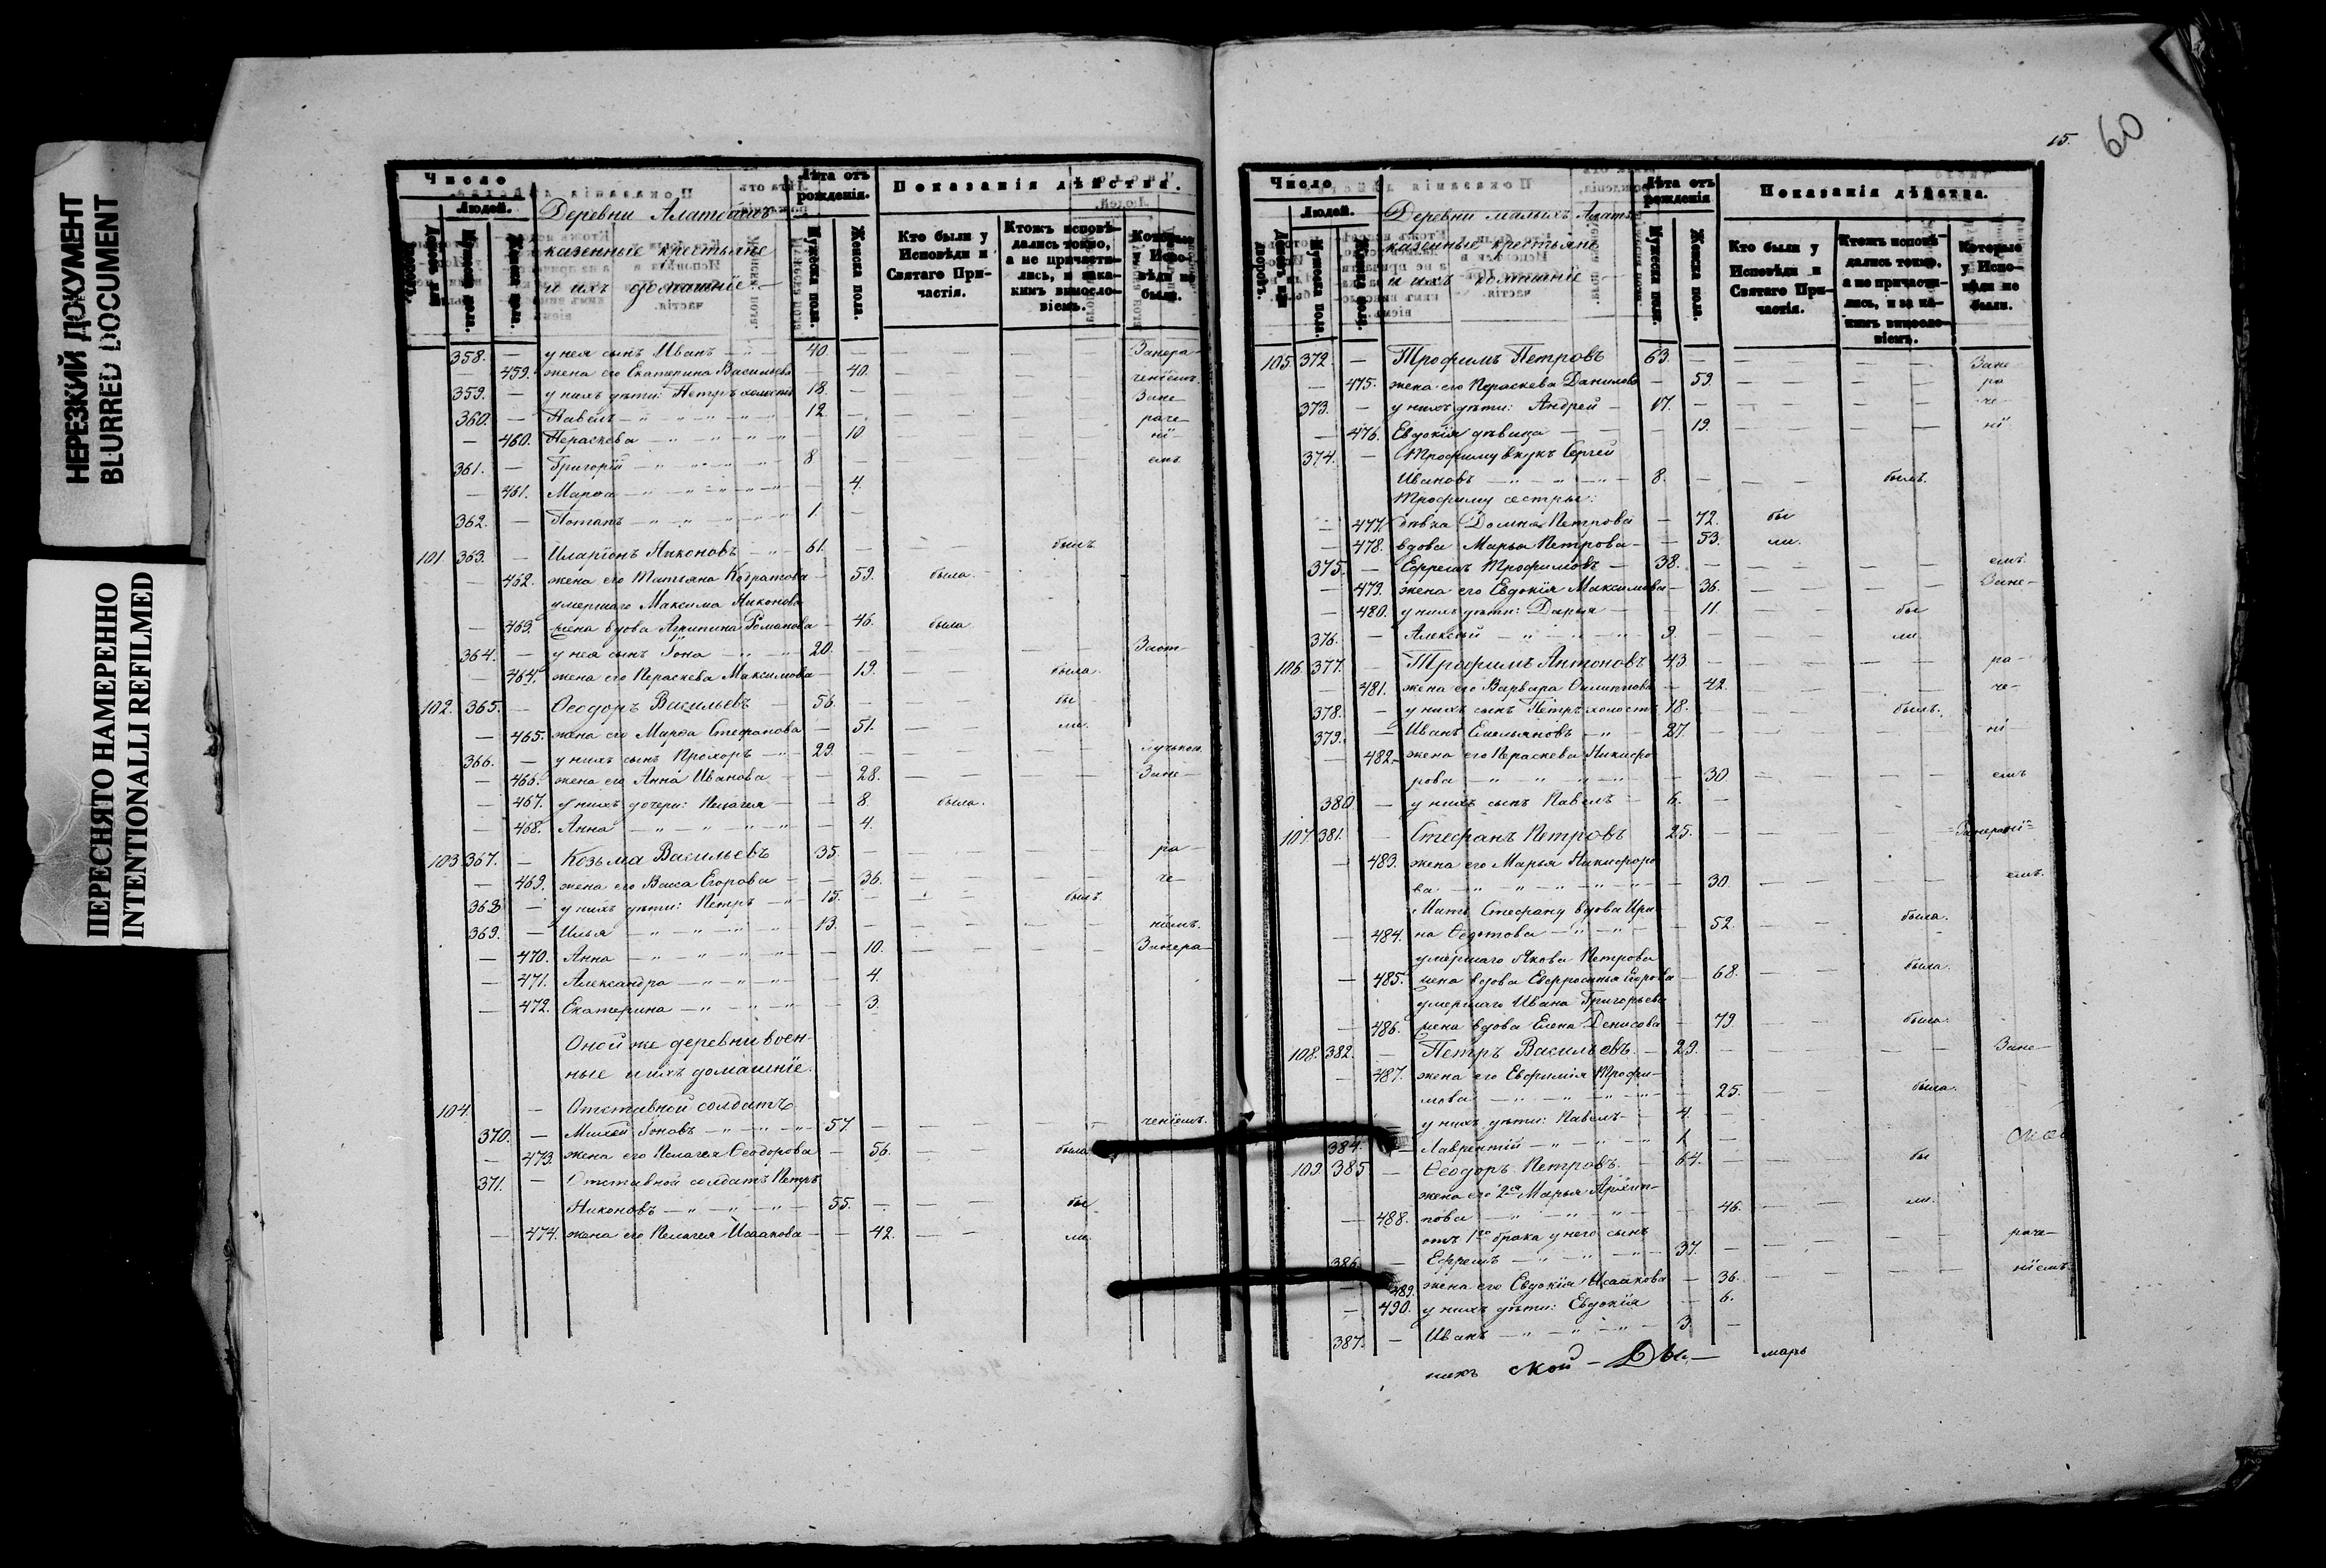 НЕРЕЗКИЙ ДОКУМЕНТ
BLURRED DOCUMENT
ПЕРЕСНЯТО НАМЕРЕННО
INTENTIONALLI REFILMED
Число
Людей.
Дворовъ.
Мужеска пола.
Женска пола.
Деревни
казенные крестьяне
и ихъ домашніе
Лѣта отъ рожденія.
Мужеска пола.
Женска пола.
Показанія дѣйства.
Кто были у Исповѣди и Святаго Причастія.
Ктожъ исповѣдались токмо, а не причастились, и за какимъ винословіемъ.
Которые у Исповѣди не были.
358. — у нея сынъ Иванъ — 40. — Занера-
— 459. жена его Екатерина Васильева — 40. ченіемъ.
359. — у нихъ дѣти: Петръ холостъ 18. — Зане-
360. — Павелъ — 12. — раче-
— 460. Пераскева — 10 — ні-
361. — Григорій — 8 — емъ
— 461. Марѳа — 4.
362. — Потапъ — 1. —
101. 363. — Иларіонъ Никоновъ — 61. — былъ
— 462. жена его Татьяна Кодратова — 59. была.
умершаго Максима Никонова
— 463. жена вдова Агрипина Романова — 46. была
364. — у нея сынъ Іона — 20. —
— 464. жена его Пераскева Максимова — 19. — была.
102. 365. — Ѳеодоръ Васильевъ — 56. — бы
— 465. жена его Марѳа Стефанова — 51. — ли.
366. — у нихъ сынъ Прохоръ — 29. —
— 466. жена его Анна Иванова — 28. — Зане-
— 467. у нихъ дочери: Пелагея — 8. была.
— 468. Анна — 4.
103 367. — Козьма Васильевъ 35. — ра-
— 469. жена его Васса Егорова — 36. — че-
368 — у нихъ дѣти: Петръ — 15. — былъ.
369. — Илья — 13. — ніемъ.
— 470. Анна — 10. — Занера-
— 471. Александра — 4.
— 472. Екатерина — 3.
Оной же деревни воен-
ные и ихъ домашніе.
104. — Отставной солдатъ
370. — Михей Іоновъ — 57. — ченіемъ.
— 473. жена его Пелагея Ѳеодорова — 56. — была
371. — Отставной солдатъ Петръ
Никоновъ — 55. — бы
— 474. жена его Пелагея Исаакова — 42. — ли.
15.
60
Число
Людей.
Дворовъ.
Мужеска пола.
Женска пола.
Деревни малыхъ
казенные крестьяне
и ихъ домашніе
Лѣта отъ рожденія
Мужеска пола.
Женска пола.
Показанія дѣйства.
Кто были у Исповѣди и Святаго Причастія.
Ктожъ исповѣдались токмо, а не причастились, и за какимъ винословіемъ.
Которые у Исповѣди не были.
105. 372. — Трофимъ Петровъ 63. — Зане
— 475. жена его Пераскева Данилова — 59. — ра
373. — у нихъ дѣти: Андрей — 17. — че-
— 476. Евдокія дѣвица — 19. — ні
374. — Трофиму внукъ Сергей
Ивановъ — 8. — былъ.
Трофиму сестры:
— 477. дѣвка Домна Петрова — 72. бы
— 478. вдова Марья Петрова — 53. ли.
375. — Ефремъ Трофимовъ — 38. — емъ.
— 479. жена его Евдокія Максимова — 36. — Зане-
— 480. у нихъ дѣти: Дарья — 11. — бы
376. — Алексѣй — 9. — ли.
106. 377. — Трофимъ Антоновъ 43 — ра-
— 481. жена его Варвара Филиппова — 42. — че-
378. — у нихъ сынъ Петръ холостъ 18. — былъ.
379. — Иванъ Емельяновъ — 27. — ні
482. жена его Пераскева Никифо
рова — 30 — емъ
380 — у нихъ сынъ Павелъ — 6. —
107. 381. — Стефанъ Петровъ 25. —
— 483. жена его Марья Никифоро
ва — 30. — емъ.
Мать Стефану вдова Ири-
— 484. на Ѳедотова — 52. — была.
умершаго Якова Петрова
— 485. жена вдова Евфросинья Егорова — 68. — была.
умершаго Ивана Григорьева
— 486. жена вдова Елена Денисова — 79. — была.
108. 382. — Петръ Васильевъ — 29. — Зане-
— 487. жена его Евфимія Трофи-
мова — 25. — была.
— у нихъ дѣти: Павелъ — 4. —
384. — Лаврентій — 1. —
109. 385 — Ѳеодоръ Петровъ. — 64. — бы
жена его 2я Марья Архип-
— 488. пова — 46. — ли.
отъ 1го брака у него сынъ
386. — Ефремъ — 37. — раче-
— 489. жена его Евдокія Исаакова — 36. — ніемъ
— 490. у нихъ дѣти: Евдокія — 6.
387. — Иванъ — 3. —